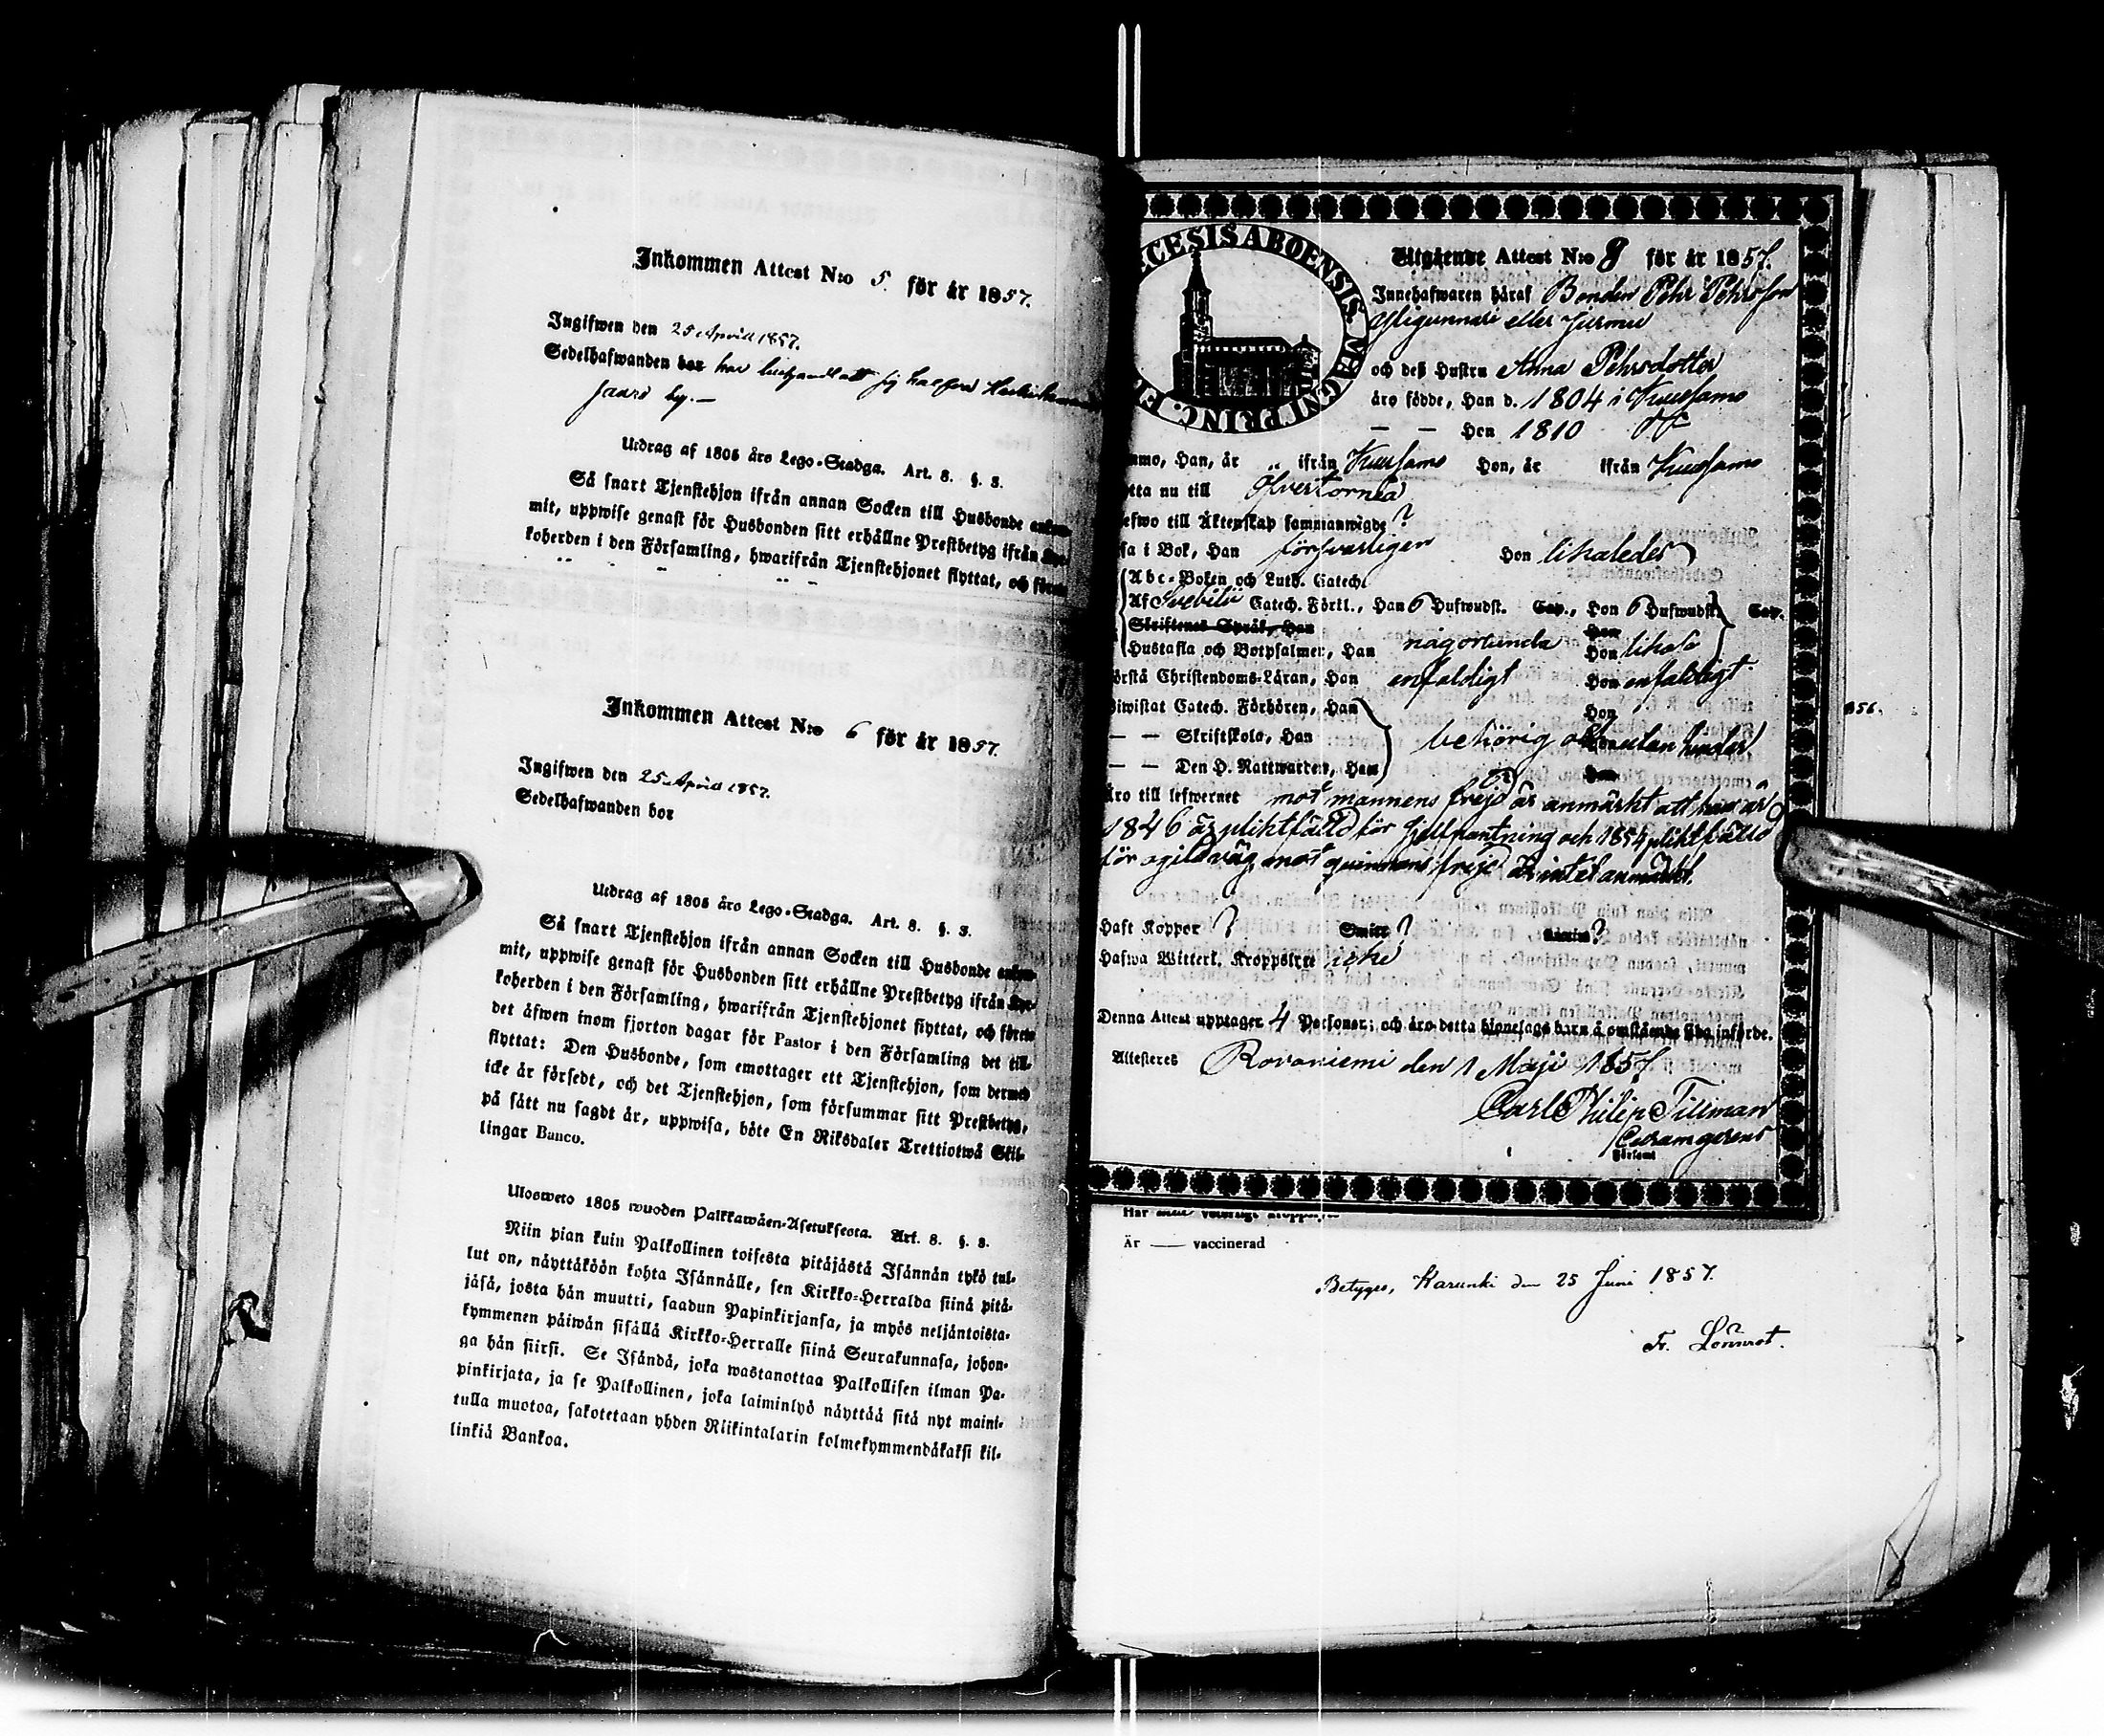 Inkommen Attest N:o 5. för år 1857.
Ingifwen den 25 Aprill 1857.
Sedelhafwanden bor har
by. —
Utdrag af 1805 års Lego-Stadga. Art. 8. §. 3.
Så snart Tjenstehjon ifrån annan Socken till Husbonde ankom-
mit, uppwise genast för Husbonden sitt erhållne Prestbetyg ifrån Kyr-
koherden i den Församling, hwarifrån Tjenstehjonet flyttat, och förete
Inkommen Attest N:o 6 för år 1857.
Ingifwen den 25 Aprill 1857.
Sedelhafwanden bor
Utdrag af 1805 års Lego-Stadga. Art. 8. §. 3.
Så snart Tjenstehjon ifrån annan Socken till Husbonde ankom-
mit, uppwise genast för Husbonden sitt erhållne Prestbetyg ifrån Kyr-
koherden i den Församling, hwarifrån Tjenstehjonet flyttat, och förete
det äfwen inom fjorton dagar för Pastor i den Församling det till-
flyttat: Den Husbonde, som emottager ett Tjenstehjon, som dermed
icke är försedt, och det Tjenstehjon, som försummar sitt Prestbetyg,
på sätt nu sagdt är, uppwisa, böte En Riksdaler Trettiotwå Skil-
lingar Banco.
Ulosweto 1805 wuoden Palkkawäen-Asetuksesta. Art. 8. §. 3.
Niin pian kuin Palkollinen toisesta pitäjästä Isännän tykö tul-
lut on, näyttäköön kohta Isännälle, sen Kirkko-Herralda siinä pitä-
jäsä, josta hän muutti, saadun Papinkirjansa, ja myös neljäntoista-
kymmenen päiwän sisällä Kirkko-Herralle siinä Seurakunnasa, johon-
ga hän siirsi. Se Isändä, joka wastanottaa Palkollisen ilman Pa-
pinkirjata, ja se Palkollinen, joka laiminlyö näyttää sitä nyt maini-
tulla muotoa, sakotetaan yhden Riikintalarin kolmekymmendäkaksi kil-
linkiä Bankoa.
CESIS ABOENSIS. MAGNI PRINC. F
Utgående Attest N:o 8 för år 1857.
Innehafwaren häraf Bonden Pehr Pehrsson
Yligunnari eller Jurmu
och deß Hustru Anna Pehrsdotter
äro födde, Han d. 1804 i Kuusamo
— — Hon 1810
mmo, Han, år „ ifrån Kuusamo Hon, år ifrån Kuusamo
tta nu till Öfvertorneå
efwo till Äktenskap sammanwigde ?
sa i Bok, Han försvarligen Hon likaledes
Abc-Boken och Luth. Catech.
Af Svebilii Catech. Förkl., Han 6 Hufwudst. Cap., Hon 6 Hufwudst. Cap.
Skriftenes Språk, Han Hon
Hustafla och Botpsalmer, Han någorlunda Hon lika
örstå Christendoms-Läran, Han enfaldigt Hon enfaldigt
Biwistat Catech. Förhören, Han Hon
— — Skriftskola, Han behörig och utan hinder
— — Den H. Nattwarden, Han Hon
äro till lefwernet mot mannens frejd är anmärkt att han år
1846 är pliktfälld för sjelfpantning och 1854 pliktfälld
för ogild väg, mot qvinnans frejd är intet anmärkt.
Haft Koppor ? Smitt ?
Hafwa Witterl. Kroppslyte icke
Denna Attest upptager 4 Personer; och äro detta hjonelags barn å omstående sida införde.
Attesteres Rovaniemi den 1 Maji 1857.
Carl Philip Tillman
Curam gerens
Församl
856.
Är —— vaccinerad
Betygas, Karunki den 25 Juni 1857.
Fr. Lönnrot.